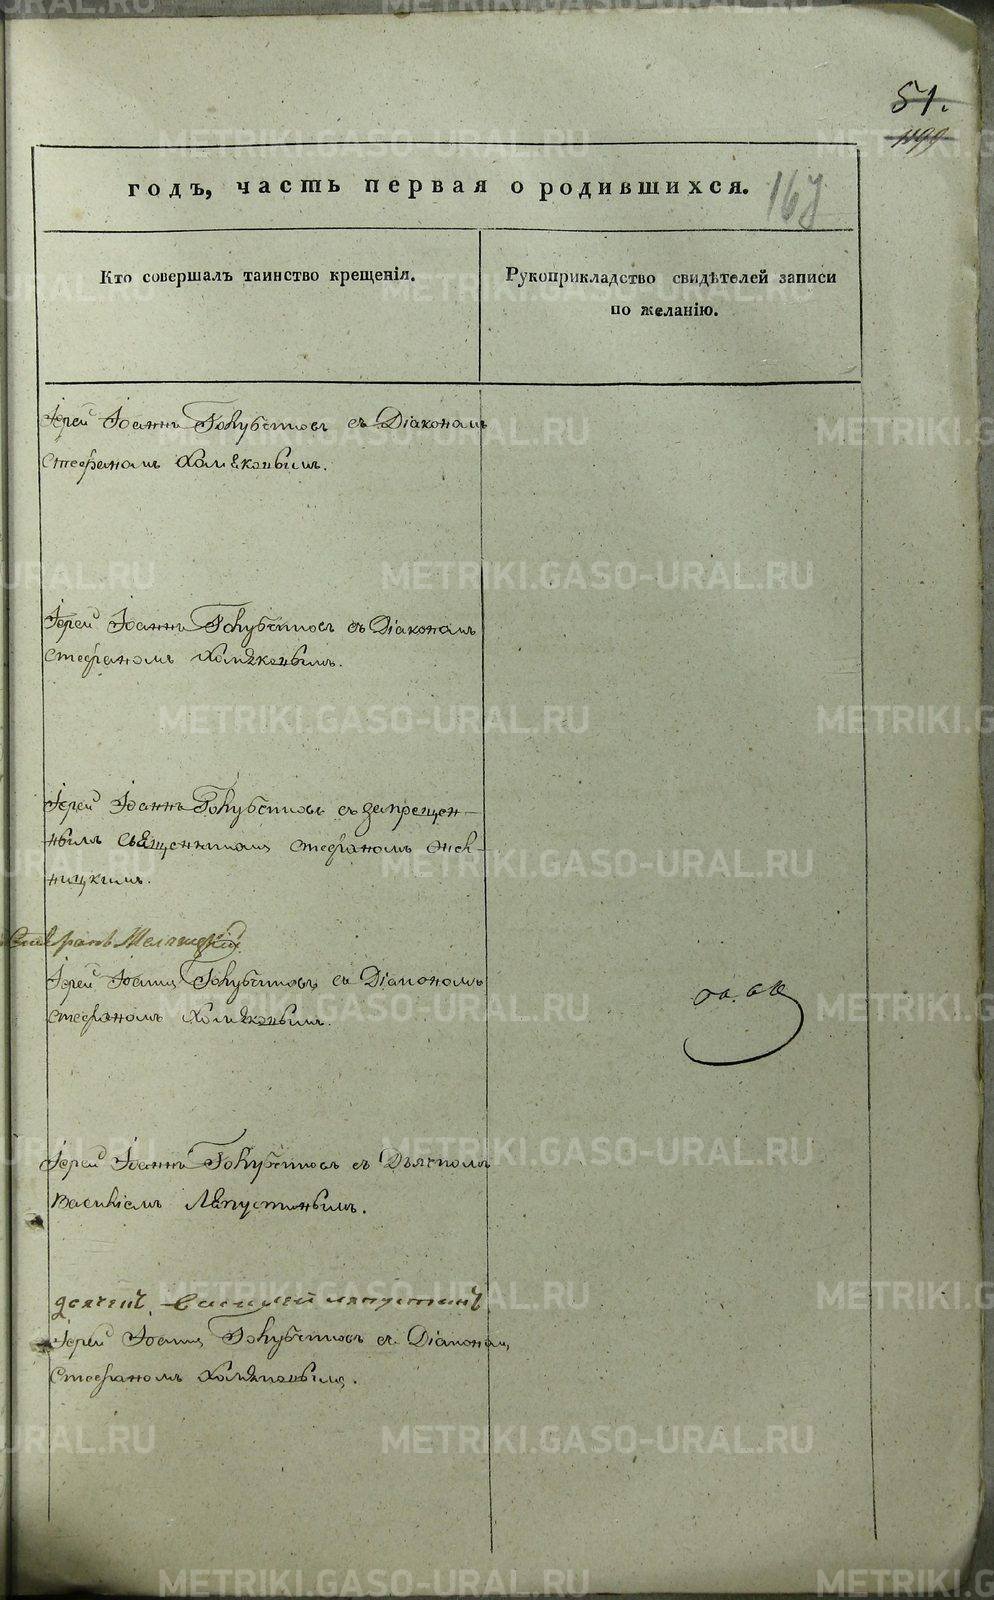 51.
годъ, часть первая о родившихся.
167
Кто совершалъ таинство крещенія.
Рукоприкладство свидѣтелей записи
по желанію.
Іерей Іоаннъ Голубчиковъ съ Діакономъ
Стефаномъ Хомяковымъ.
Іерей Іоаннъ Голубчиковъ съ Діакономъ
Стефаномъ Хомяковымъ.
Іерей Іоаннъ Голубчиковъ съ запрещен-
нымъ священникомъ Стефаномъ
ницкимъ.
Іерей Іоаннъ Голубчиковъ съ Діакономъ
Стефаномъ Хомяковымъ.
Іерей Іоаннъ Голубчиковъ съ Дьячкомъ
Василіемъ Ляпустинымъ.
дьячекъ василей ляпустинъ
Іерей Іоаннъ Голубчиковъ съ Діакономъ
Стефаномъ Хомяковымъ.
METRIKI.GASO-URAL.RU